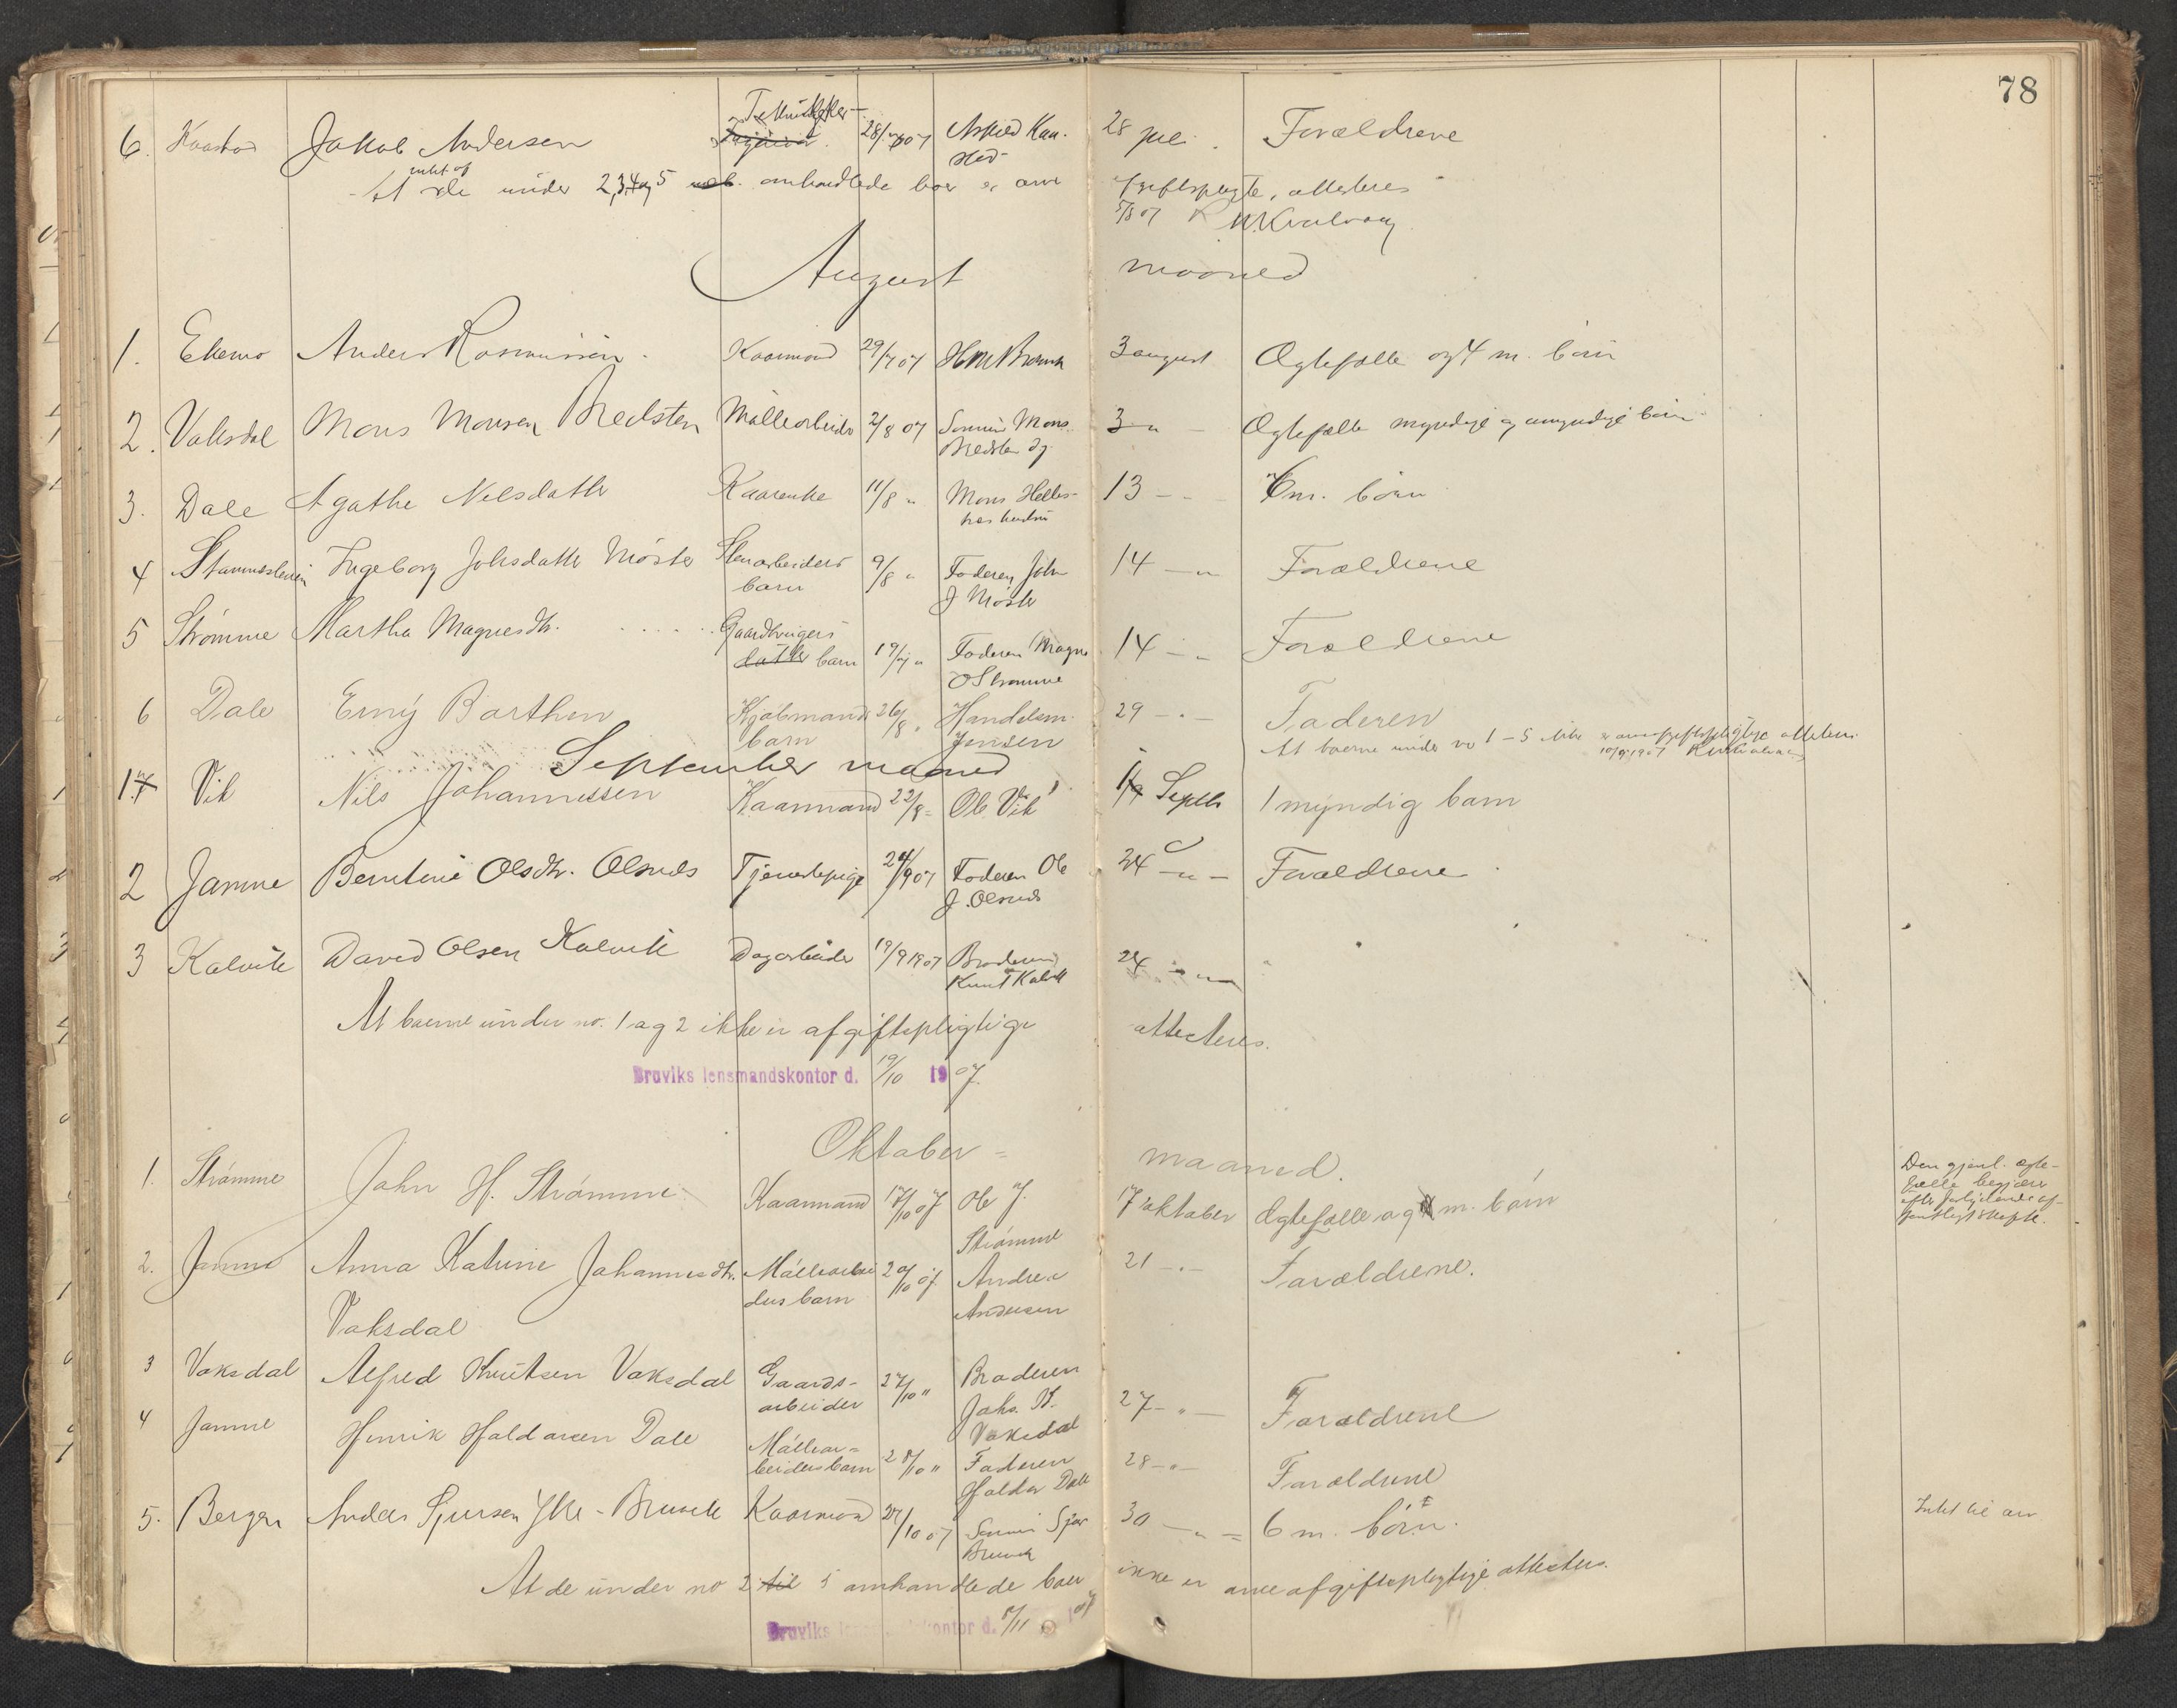 78
6. Kaarstad Jakob Andersen 28/7 07 28 juli. Forældrene
intet af
At de under 2, 3, 4 og 5 omhandlede boer er arve afgiftspligte, attesteres
5/8 07
August maaned
1. Ekemo Anders Rasmussen Kaarmand 29/7 07 3 august Ægtefælle og 4 m. börn
2. Vaksdal Mons Monsen Bredsten Møllearbeider 2/8 07 Sønnen Mons 3 " - Ægtefælle myndige og umyndige börn
Bredsten dy
3. Dale Agathe Nilsdatter Kaarenke 11/8 " Mons Helles- 13 - " - 6 m. börn
4 Stamneshein Ingeborg Johsdatter Møster Stenarbeiders 9/8 " Faderen John 14 - " Forældrene
barn J Møster
5 Strømme Martha Magnesdtr. Gaardbrugers
datter barn 19/7 " Faderen Magne 14 - " Forældrene
O Strømme
6 Dale Erny Barthen Kjøbmands 26/8 " Handelsm. 29 - " - Faderen
barn Jensen
At boerne under no 1 - 5 ikke er arveafgiftspligtige attesteres
10/9 1907
September maaned
1. Vik Nils Johannessen Kaarmand 22/8 - Ole Vik 1/9 Septb 1 myndig barn
2 Jamne Berntine Olsdtr. Olsnes Tjenestepige 24/9 07 Faderen Ole 24 - " - Forældrene
J. Olsnes
3 Kalvik David Olsen Kalvik Dagarbeider 19/9 1907 Broderen 24 - " -
Knut Kalvik
At boerne under no. 1 og 2 ikke er afgiftspligtige attesteres.
Bruviks lensmandskontor d. 19/10 1907.
Oktober = maaned.
1. Strømme John H. Strømme Kaarmand 17/10 07 Ole J. 17 oktober Ægtefælle og m. börn
Strømme
Den gjenl. ægte-
fælle begjærer
2. Jamne Anna Katrine Johannesdtr. Møllearbei 20/10 07 Andreas 21 - " - Forældrene.
Vaksdal ders barn Andersen
3 Vaksdal Alfred Knutsen Vaksdal Gaards- 27/10 " Broderen 27 - " - Forældrene
arbeider Johs. K.
Vaksdal
4 Jamne Henrik Haldorsen Dale Møllear= 28/10 " Faderen 28 - " - Forældrene
beiders barn Haldor Dale
5. Bergen Anders Sjursen Ytre-Bruvik Kaarmand 27/10 07 Sønnen Sjur 30 - " = 6 m. börn.
Bruvik
Intet til arv
At de under no 2 til 5 omhandlede boer ikke er arveafgiftspligtige attesteres.
Bruviks lensmandskontor d. 5/11 1907